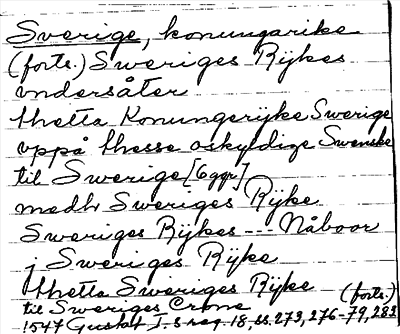 Sverige, konungarike
(forts.) Sweriges Rijkes
vndersåter
thetta Konungerijke Swerige
vppå thesse oskyldige Swenske
til Swerige [6 ggr]
medh Sweriges Rijke
Sweriges Rijkes --- Nåboor
j Sweriges Rijke
thetta Sweriges Rijke (forts.)
til Sweriges Crone
1547 Gustaf I:s reg. 18, ss. 273, 276-79, 283